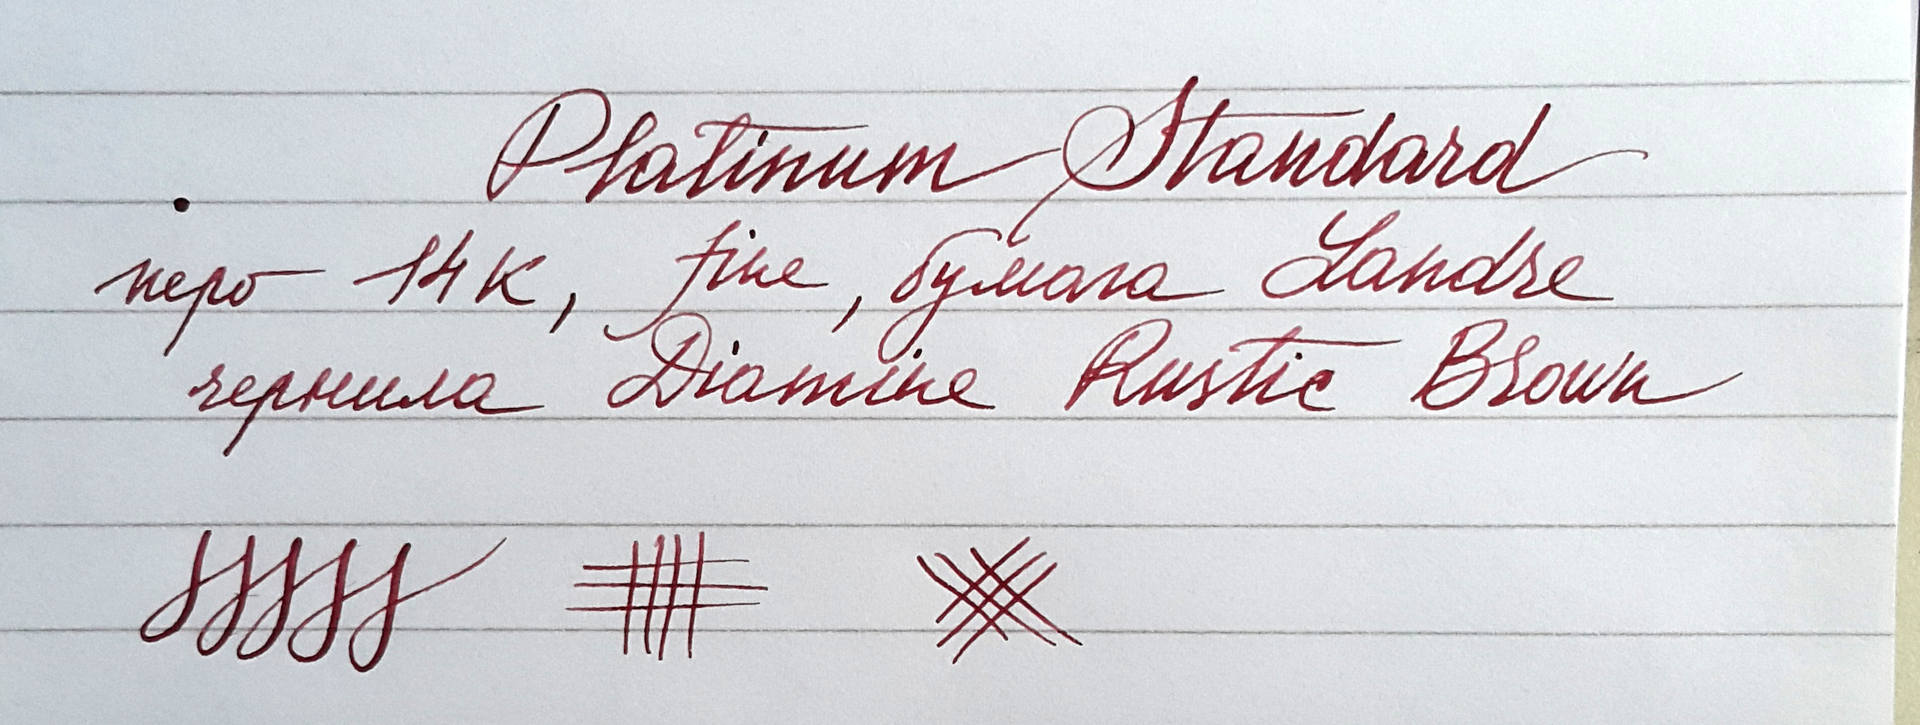 Platinum Standard
перо 14К, fine, бумага Landre
чернила Diamine Rustic Brown